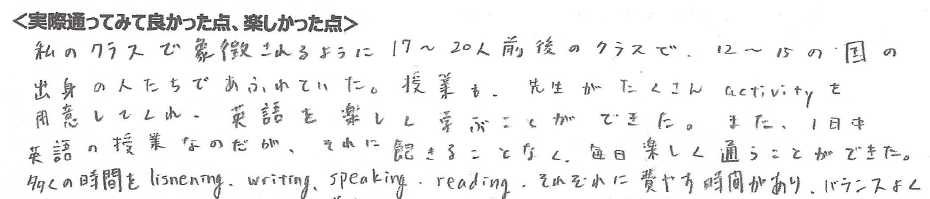 ＜実際通ってみて良かった点、楽しかった点＞
私のクラスで象徴されるように17〜20人前後のクラスで、12〜15の国の
出身の人たちであふれていた。授業も、先生がたくさんactivityを
用意してくれ、英語を楽しく学ぶことができた。また、1日中
英語の授業なのだが、それに飽きることなく、毎日楽しく通うことができた。
多くの時間をlisnening、writing、speaking、reading、それぞれに費やす時間があり、バランスよく